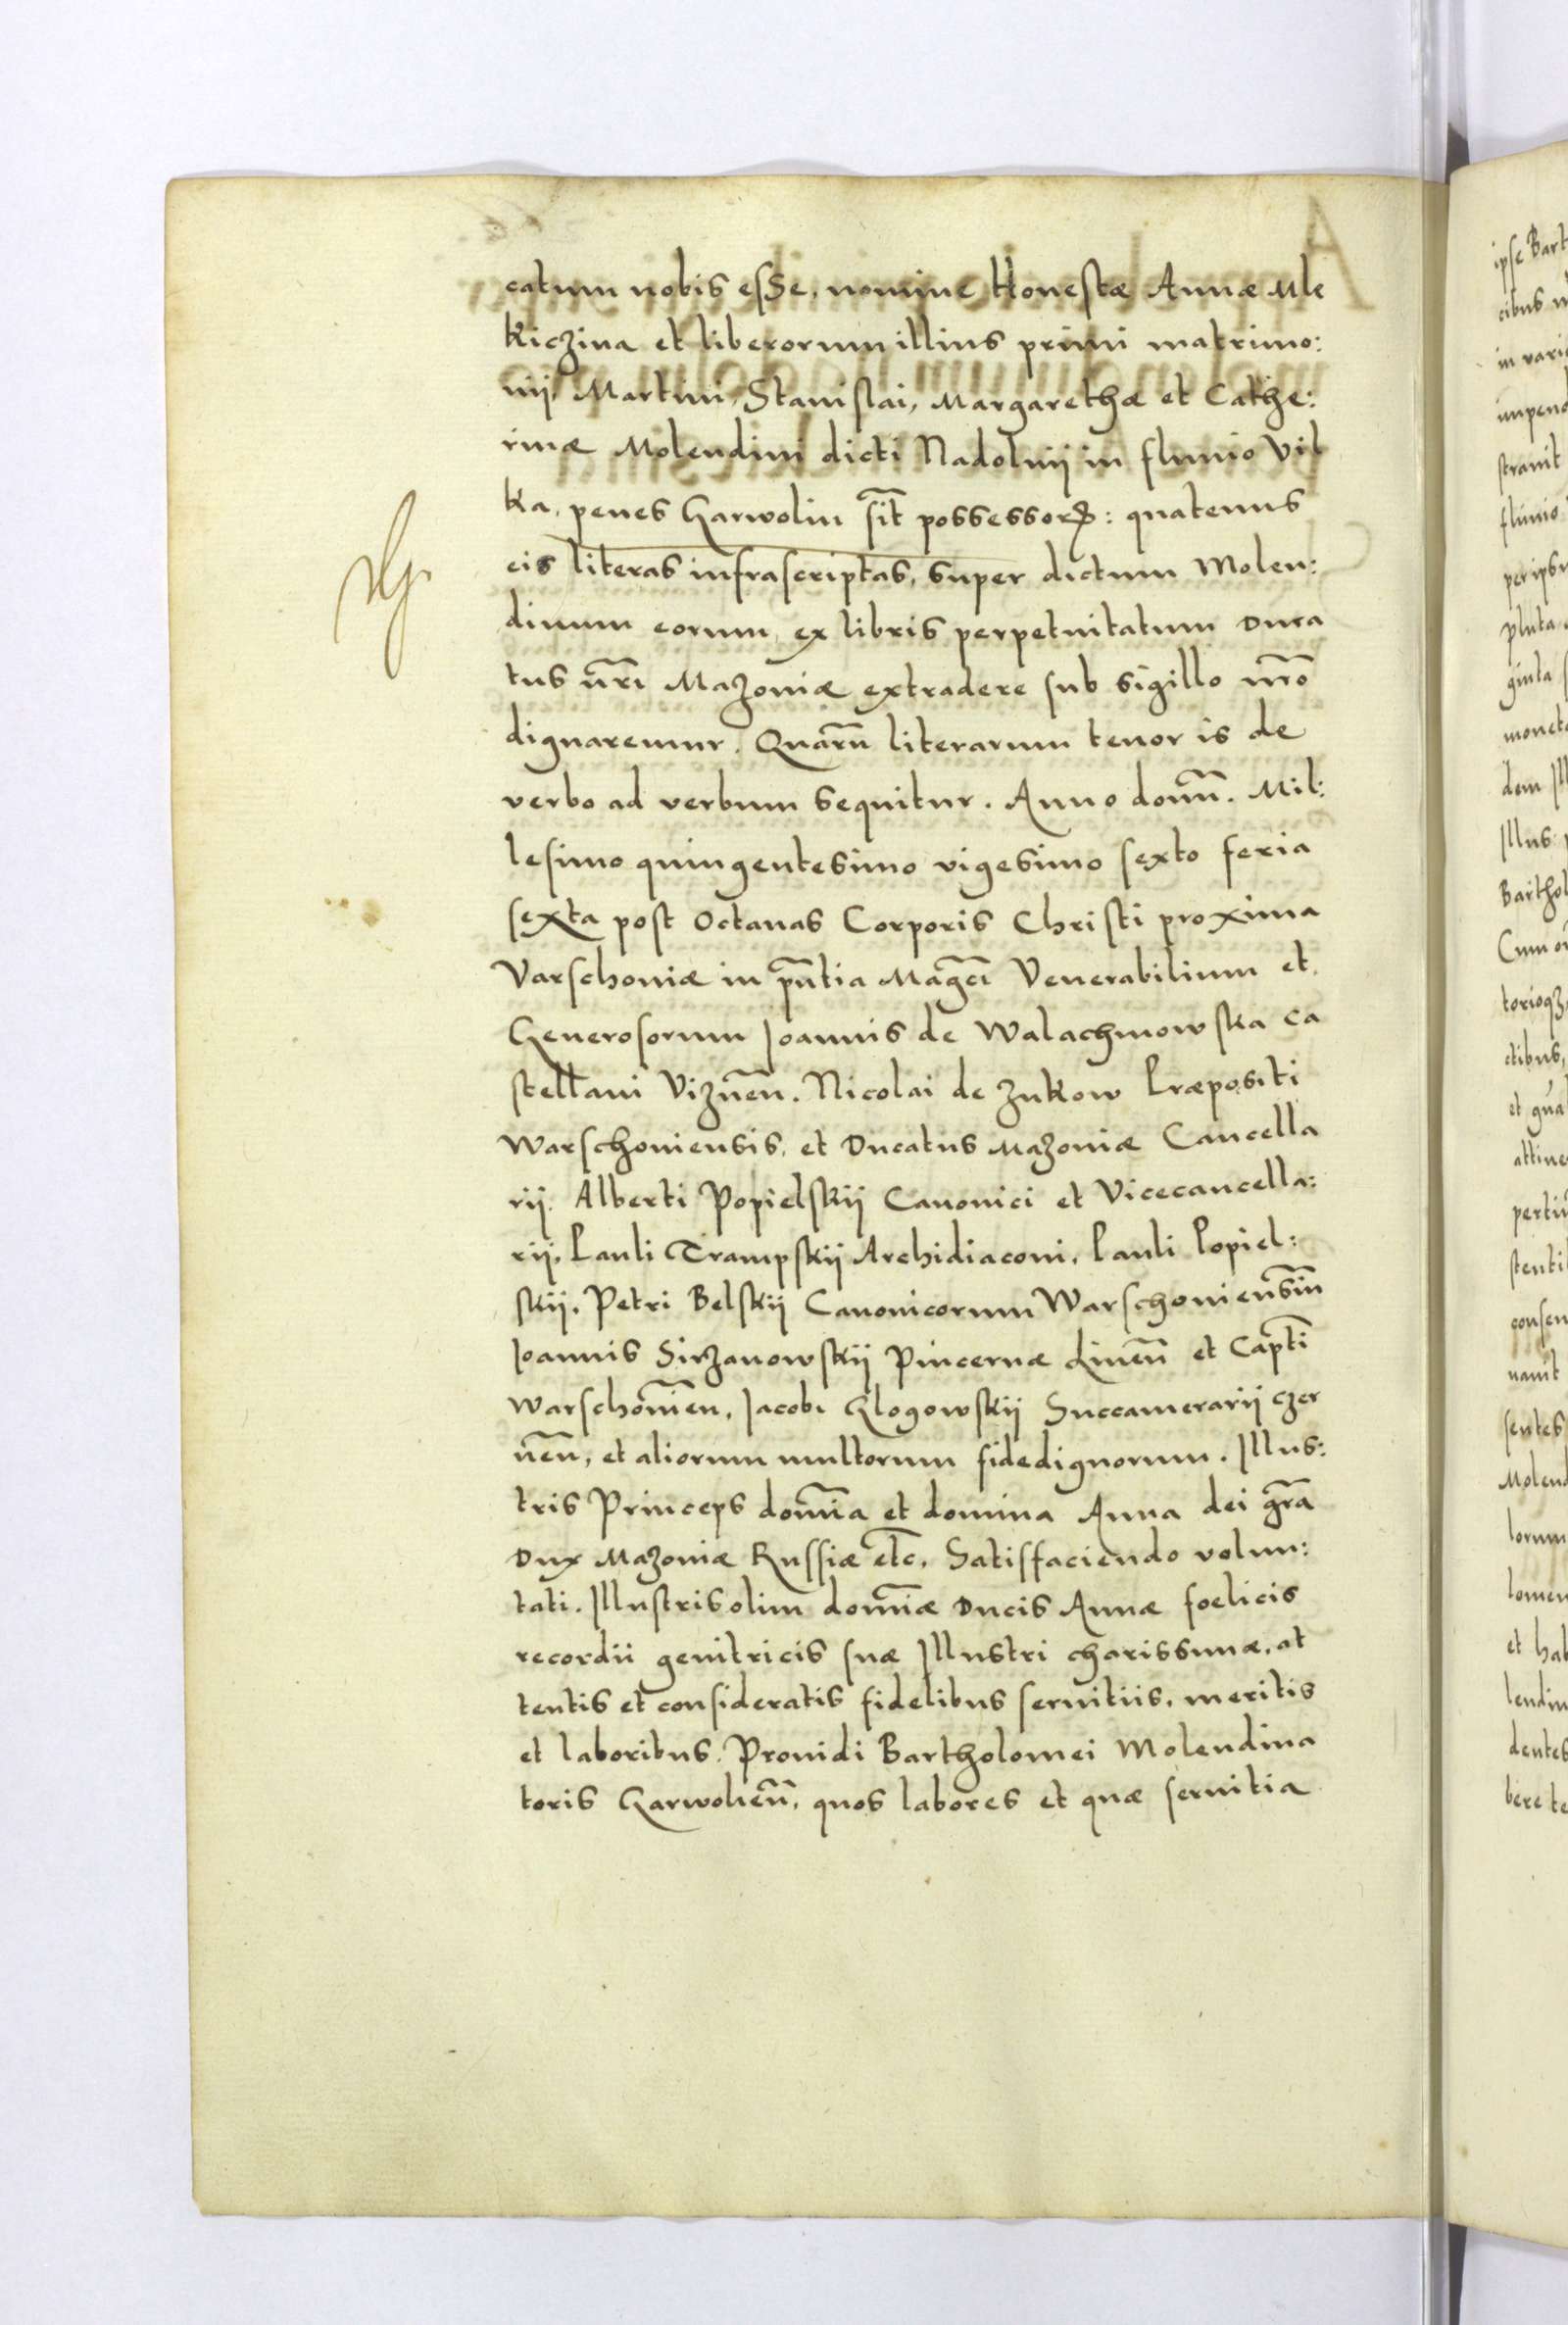 catum nobis esse, nomine Honestæ Annæ Mle
kiczina et liberorum illius primi matrimo:
nij Martini, Stanislai, Margarethæ et Cathe:
rinæ Molendini dicti Nadolnij in fluuio Vil
ka, penes Garwolin sit̃ possessorꝝ: quatenus
eis literas infrascriptas, super dictum Molen:
dinum eorum ex libris perpetuitatum Duca
tus nr̃i Mazoniæ extradere sub sigillo nr̃o
dignaremur. Quarũ literarum tenor is de
verbo ad verbum sequitur. Anno domñ. Mil:
lesimo quingentesimo vigesimo sexto feria
sexta post Octauas Corporis Christi proxima
Varschoniæ in pñtia Mag̃ci Venerabilium et
Generosorum Joannis de Walachmowska Ca
stellani Vizneñ. Nicolai de Zukow Præpositi
Warschoniensis, et Ducatus Mazoniæ Cancella
rij. Alberti Popielskij Canonici et Vicecancella:
rij, Pauli Trampskij Archidiaconi, Pauli Popiel:
skij, Petri Belskij Canonicorum Warschonien̄siũ
Joannis Sirzanowskij Pincernæ Liueñ et Captĩ
Warschonieñ, Jacobi Glogowskij Succamerarij Czer
neñ, et aliorum multorum fidedignorum. Illus:
tris Princeps domĩa et domina Anna dei gr̃a
Dux Mazoniæ Russiæ etc̃. Satisfaciendo volun:
tati. Illustris olim domĩæ Ducis Annæ foelicis
recordii genitricis suæ Illustri charissimæ, at
tentis et consideratis fidelibus seruitiis, meritis
et laboribus, Prouidi Bartholomei Molendina
toris Garwolieñ, quos labores et quæ seruitia
ipse Bart
cibus
in vari
impend
strauit
fluuio
per ips
pluta
ginta
moneta
dem Ill
Illus:
Barthol
Cum
torioqꝫ
ctibus,
attine
consen
nauit
sentes
Molend
lorum
lomen
et hab
lendin
dentes
bere te